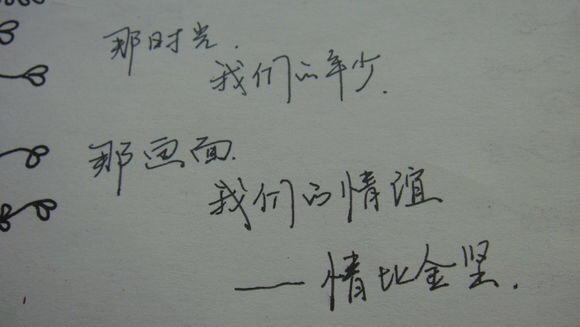 那时光.
我们的年少.
那画面.
我们的情谊
——情比金坚.